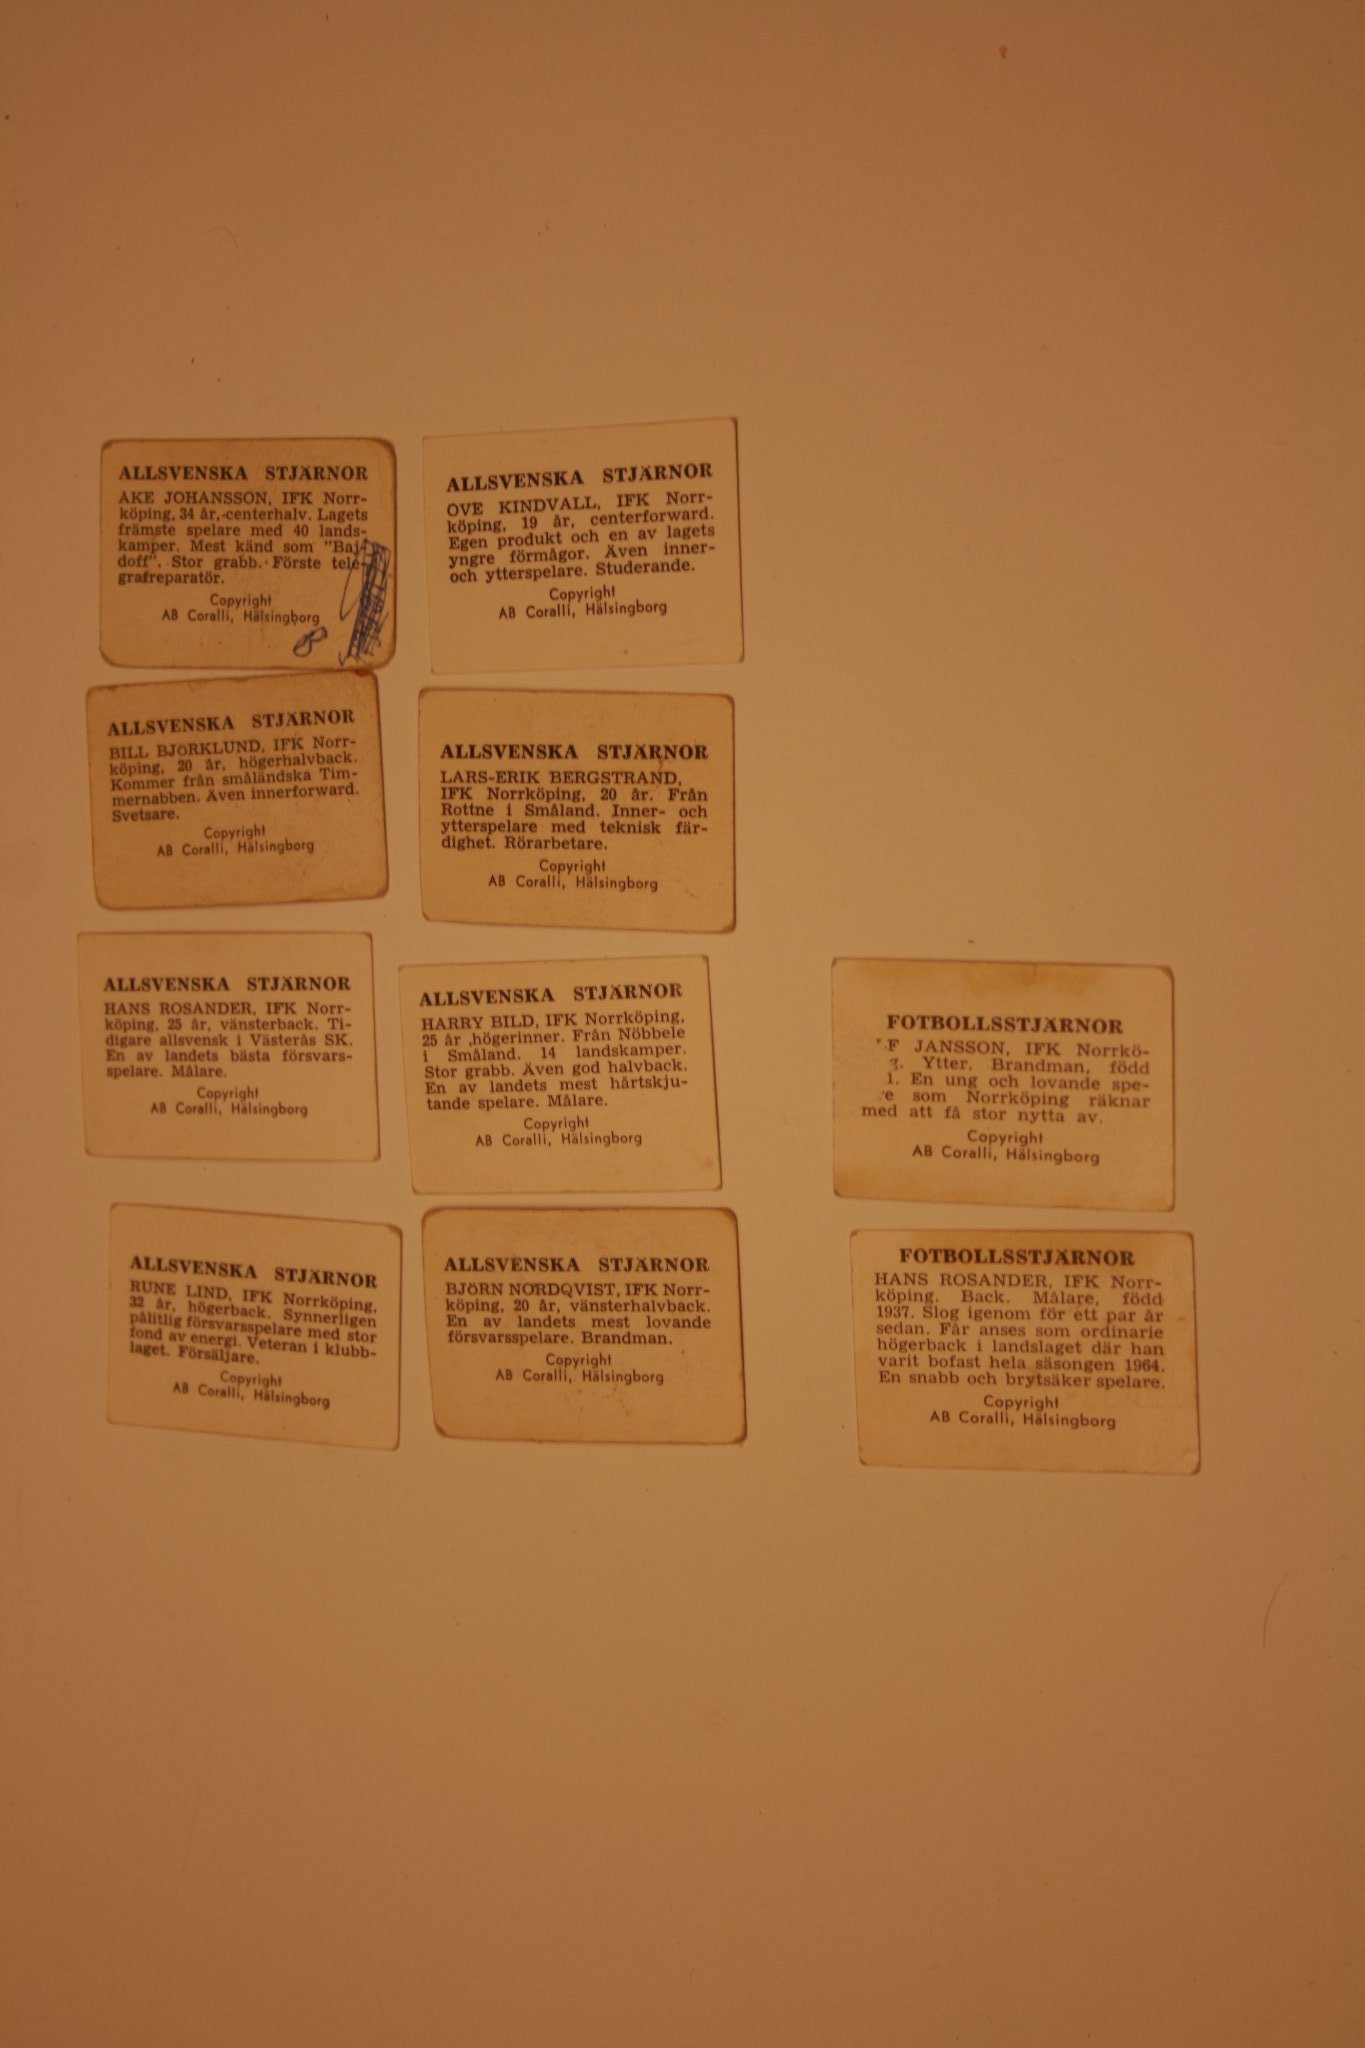 ALLSVENSKA STJÄRNOR
AKE JOHANSSON, IFK Norr-
köping, 34 år, centerhalv. Lagets
främste spelare med 40 lands-
kamper. Mest känd som "Baj-
doff". Stor grabb. Förste tele-
grafreparatör.
Copyright
AB Coralli, Hälsingborg
ALLSVENSKA STJÄRNOR
OVE KINDVALL, IFK Norr-
köping, 19 år, centerforward.
Egen produkt och en av lagets
yngre förmågor. Även inner-
och ytterspelare. Studerande.
Copyright
AB Coralli, Hälsingborg
ALLSVENSKA STJÄRNOR
BILL BJÖRKLUND, IFK Norr-
köping, 20 år, högerhalvback.
Kommer från småländska Tim-
mernabben. Även innerforward.
Svetsare.
Copyright
AB Coralli, Hälsingborg
ALLSVENSKA STJÄRNOR
LARS-ERIK BERGSTRAND,
IFK Norrköping, 20 år. Från
Rottne i Småland. Inner- och
ytterspelare med teknisk fär-
dighet. Rörarbetare.
Copyright
AB Coralli, Hälsingborg
ALLSVENSKA STJÄRNOR
HANS ROSANDER, IFK Norr-
köping, 25 år, vänsterback. Ti-
digare allsvensk i Västerås SK.
En av landets bästa försvars-
spelare. Målare.
Copyright
AB Coralli, Hälsingborg
ALLSVENSKA STJÄRNOR
HARRY BILD, IFK Norrköping,
25 år ,högerinner. Från Nöbbele
i Småland. 14 landskamper.
Stor grabb. Även god halvback.
En av landets mest hårtskju-
tande spelare. Målare.
Copyright
AB Coralli, Hälsingborg
FOTBOLLSSTJÄRNOR
F JANSSON, IFK Norrkö-
g. Ytter. Brandman, född
1. En ung och lovande spe-
e som Norrköping räknar
med att få stor nytta av.
Copyright
AB Coralli, Hälsingborg
ALLSVENSKA STJÄRNOR
RUNE LIND, IFK Norrköping,
32 år, högerback. Synnerligen
pålitlig försvarsspelare med stor
fond av energi. Veteran i klubb-
laget. Försäljare.
Copyright
AB Coralli, Hälsingborg
ALLSVENSKA STJÄRNOR
BJÖRN NORDQVIST, IFK Norr-
köping, 20 år, vänsterhalvback.
En av landets mest lovande
försvarsspelare. Brandman.
Copyright
AB Coralli, Hälsingborg
FOTBOLLSSTJÄRNOR
HANS ROSANDER, IFK Norr-
köping. Back. Målare, född
1937. Slog igenom för ett par år
sedan. Får anses som ordinarie
högerback i landslaget där han
varit bofast hela säsongen 1964.
En snabb och brytsäker spelare.
Copyright
AB Coralli, Hälsingborg